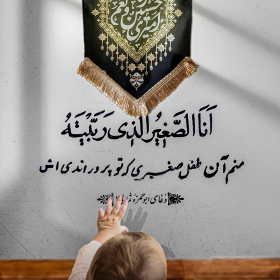 أَنَا الصَّغِيرُ الَّذِي رَبَّيْتَهُ
منم آن طفل صغیری که تو پروراندی اش
دعای ابوحمزه ثمالی